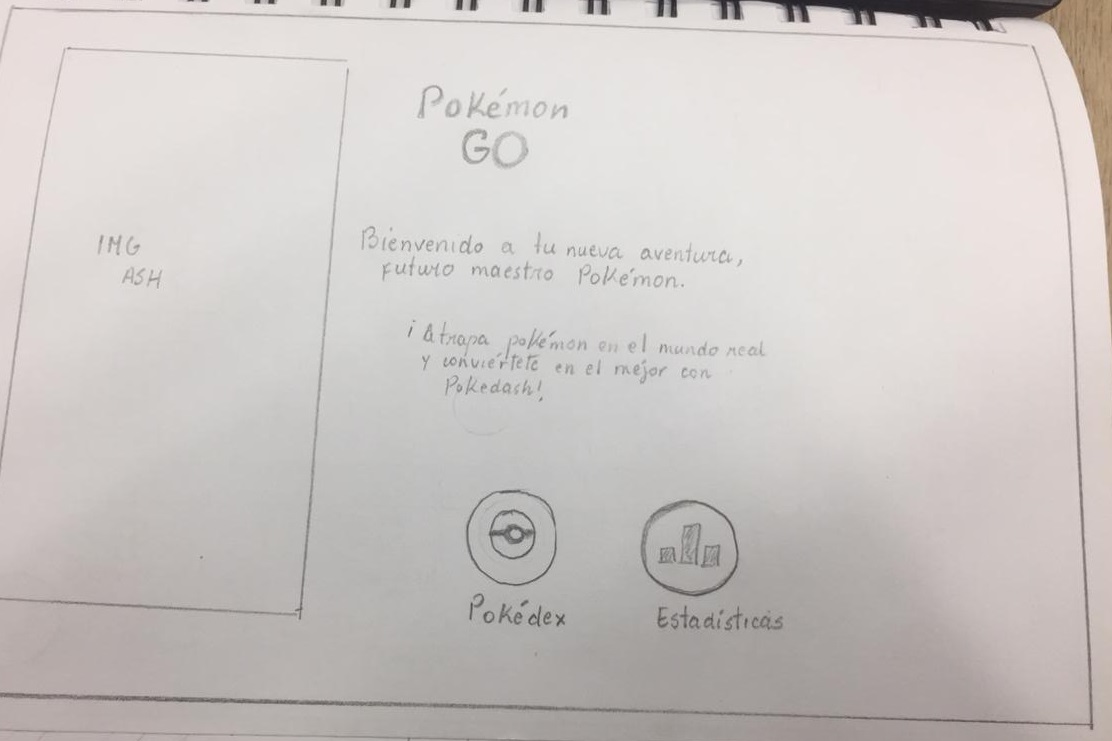 IMG
ASH
Pokémon
GO
Bienvenido a tu nueva aventura,
Futuro maestro Pokémon.
¡Atrapa pokémon en el mundo real
y conviértete en el mejor con
Pokedash!
Pokédex
Estadísticas